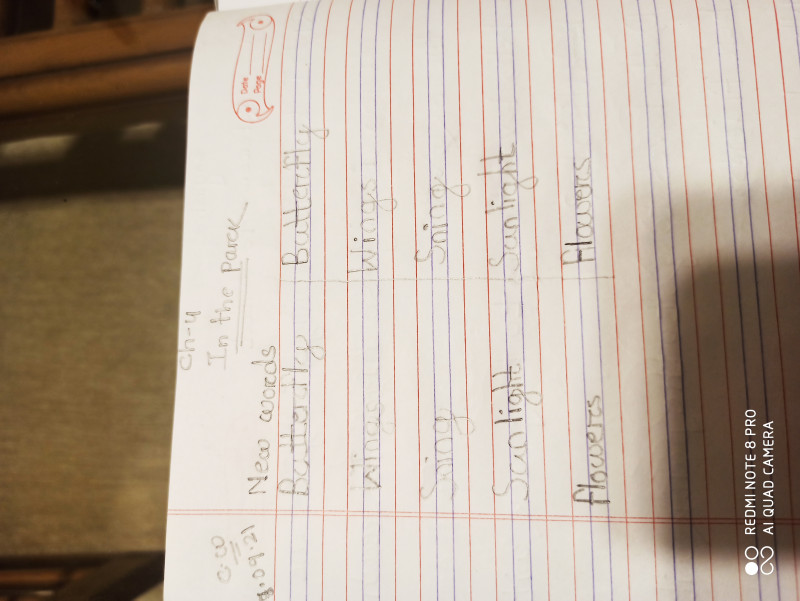 Date
Page
Ch-4
In the Park
C.W
09.21
New words
Butterfly Butterfly
Wings Wings
Sning Sning
Sunlight Sunlight
flowers flowers
REDMI NOTE 8 PRO
AI QUAD CAMERA